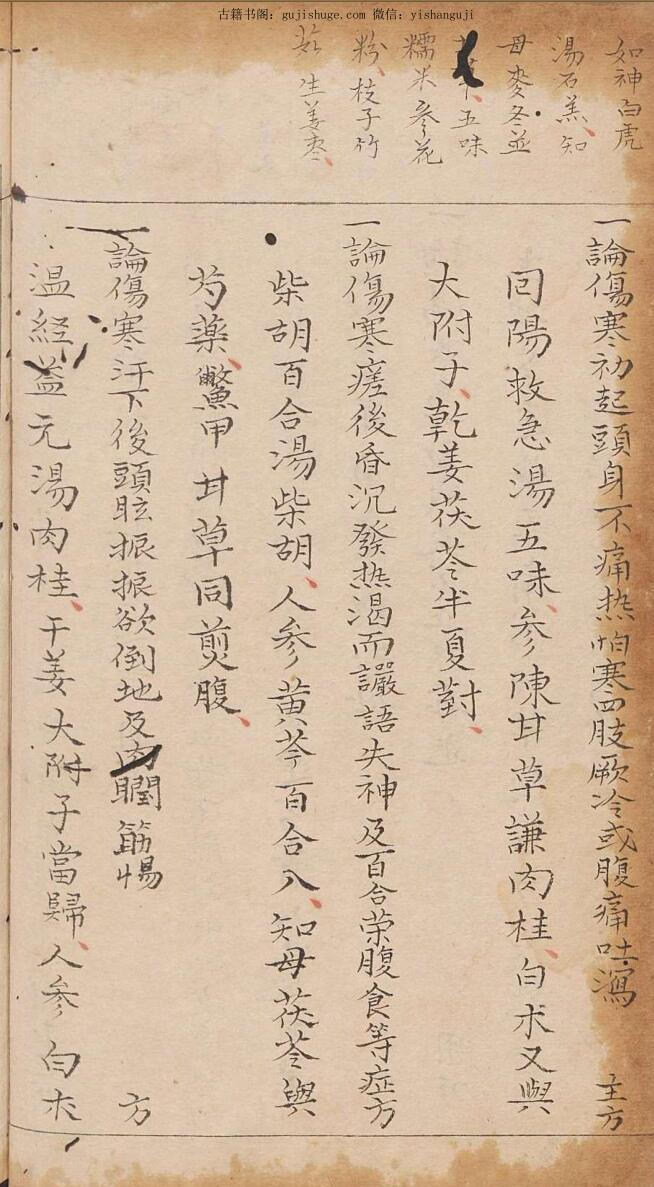 古籍书阁：gujishuge.com 微信：yishanguji
如神白虎
湯石羔、知
母麥冬並
五味
糯米參花
粉、枝子竹
茹生姜枣、
一論傷寒初起頭身不痛热怕寒四肢厥冷或腹痛吐瀉 主方
囘陽救急湯五味、参陳甘草謙肉桂、白术又與
大附子、乾姜茯苓半夏對、
一論傷寒瘥後昏沉發热渴而讝語失神及百合荣腹食等症方
柴胡百合湯柴胡、人参黄芩百合入、知母茯苓與
芍藥、鱉甲甘草同煎腹、
一論傷寒汗下後頭眩振振欲倒地及肉瞤筋惕 方
温經益元湯肉桂、干姜大附子當歸、人参白术